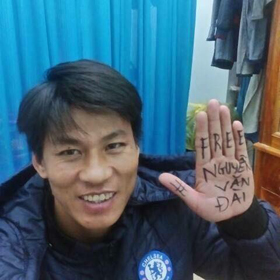 #
FREE
NGUYỄN
VĂN
ĐÀI
CHELSEA